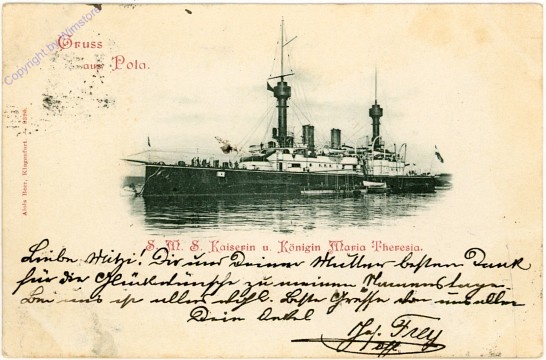 Copyright by Wimstore
Gruss
aus Pola.
Alois Beer, Klagenfurt.
S. M. S. Kaiserin u. Königin Maria Theresia.
Liebe Mitzi! Dir und Deiner Mutter besten Dank
für die Glückwünsche zu meinem Namenstage.
Bei uns ist alles wohl. Beste Grüsse von uns allen
Dein Onkel
Frey